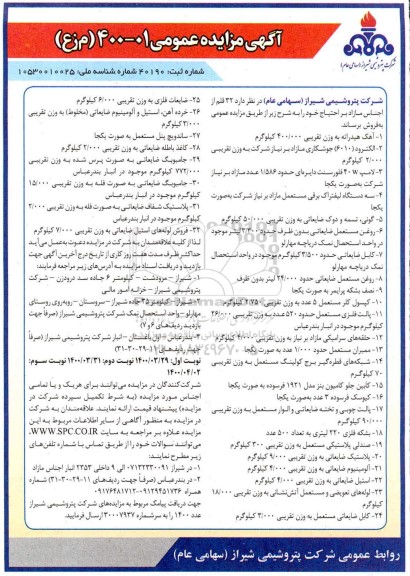 آگهی مزایده عمومی ۰۱-۴۰۰ (م زع)
شرکت پتروشیمی شیراز (سهامی عام)
شماره ثبت: ۴۰۱۹۰ شماره شناسه ملی: ۱۰۵۳۰۰۱۰۰۲۵
شرکت پتروشیمی شیراز (سهامی عام) در نظر دارد ۳۲ قلم از
اجناس مازاد بر احتیاج خود را به شرح زیر از طریق مزایده عمومی
به‌فروش برساند.
۱- آهک هیدراته به وزن تقریبی ۴۰۰/۰۰۰ کیلوگرم
۲- الکترود (۶۰۱۰) جوشکاری مازاد بر نیاز شرکت به وزن تقریبی
۲/۰۰۰ کیلوگرم
۳- لامپ ۴۰W فلورسنت دایره‌ای حدود ۱/۵۸۶ عدد مازاد بر نیاز
شرکت به‌صورت یکجا
۴- سه دستگاه لیفتراک برقی مستعمل مازاد بر نیاز شرکت به‌صورت
یکجا
۵- گونی، تسمه و دوک ضایعاتی به وزن تقریبی ۵۰/۰۰۰ کیلوگرم
۶- روغن مستعمل ضایعاتی بدون ظرف حدود ۲/۳۰۰ لیتر موجود
در واحد استحصال نمک دریاچه مهارلو
۷- کابل ضایعاتی حدود ۳/۵۰۰ کیلوگرم موجود در واحد استحصال
نمک دریاچه مهارلو
۸- روغن مستعمل ضایعاتی حدود ۲۴/۰۰۰ لیتر بدون ظرف
۹- نصف بشکه پرایمر به صورت یکجا
۱۰- کپسول کلر مستعمل ۵ عدد به وزن تقریبی ۲/۷۵۰ کیلوگرم
۱۱- پالت فلزی مستعمل حدود ۵۲۰ عدد به وزن تقریبی ۲۶/۰۰۰
کیلوگرم موجود در انبار بندرعباس
۱۲- حلقه‌های سرامیکی مازاد بر نیاز به وزن تقریبی ۴/۰۰۰ کیلوگرم
۱۳- ممبران مستعمل حدود ۱/۰۰۰ عدد به صورت یکجا
۱۴- شبکه‌های قطره‌گیر برج کولینگ مستعمل به وزن تقریبی
۷۰ کیلوگرم
۱۵- کابین جلو کامیون بنز مدل ۱۹۲۱ فرسوده به صورت یکجا
۱۶- کیوسک فرسوده ۲ عدد به‌صورت یکجا
۱۷- پالت چوبی و تخته ضایعاتی و الوار مستعمل به وزن تقریبی
۹۰/۰۰۰ کیلوگرم
۱۸- بشکه فلزی ۲۲۰ لیتری به تعداد ۵۰۰ عدد
۱۹- صندلی پلاستیکی مستعمل به وزن تقریبی ۳۰۰ کیلوگرم
۲۰- پلاستیک ضایعاتی به وزن تقریبی ۹/۰۰۰ کیلوگرم
۲۱- آلومینیوم ضایعاتی به وزن تقریبی ۴/۰۰۰ کیلوگرم
۲۲- استیل ضایعاتی به وزن تقریبی ۴/۰۰۰ کیلوگرم
۲۳- لوله‌های تعویضی و مستعمل آتش‌نشانی به وزن تقریبی ۱۸/۰۰۰
کیلوگرم
۲۴- کابل ضایعاتی مستعمل به وزن تقریبی ۳/۰۰۰ کیلوگرم
۲۵- ضایعات فلزی به وزن تقریبی ۶/۰۰۰ کیلوگرم
۲۶- خرده آهن، استیل و آلومینیوم ضایعاتی (مخلوط) به وزن تقریبی
۳/۰۰۰ کیلوگرم
۲۷- ساندویچ پنل مستعمل به صورت یکجا
۲۸- کاغذ باطله ضایعاتی به وزن تقریبی ۲/۰۰۰ کیلوگرم
۲۹- جامبوبگ ضایعاتی به صورت پرس شده به وزن تقریبی
۷۷۲/۰۰۰ کیلوگرم موجود در انبار بندرعباس
۳۰- جامبوبگ ضایعاتی به صورت فله به وزن تقریبی ۱۵/۰۰۰
کیلوگرم موجود در انبار بندرعباس
۳۱- پلاستیک شفاف ضایعاتی به صورت فله به وزن تقریبی ۲/۰۰۰
کیلوگرم موجود در انبار بندرعباس
۳۲- فروش لوله‌های استیل ضایعاتی به وزن تقریبی ۷/۰۰۰ کیلوگرم
لذا از کلیه علاقه‌مندان به شرکت در مزایده دعوت به‌عمل می‌آید
حداکثر ظرف مدت هفت روز کاری از تاریخ درج آخرین آگهی جهت
بازدید و دریافت اسناد مزایده به آدرس‌های زیر مراجعه فرمایند:
۱- شیراز - مرودشت - کیلومتر ۶ جاده سد درودزن - شرکت
پتروشیمی شیراز - خزانه امور مالی
۲- شیراز - کیلومتر ۲۵ جاده شیراز - سروستان - روبه‌روی روستای
مهارلو - واحد استحصال نمک شرکت پتروشیمی شیراز (صرفاً جهت
بازدید ردیف‌های ۶ و ۷)
نوبت اول: ۱۴۰۰/۰۳/۲۹ نوبت دوم: ۱۴۰۰/۰۳/۳۱ نوبت سوم:
۱۴۰۰/۰۴/۰۲
شرکت‌کنندگان در مزایده می‌توانند برای هریک و یا تمامی
اجناس مورد مزایده (به شرط تکمیل سپرده شرکت در
مزایده) پیشنهاد قیمت ارائه نمایند. علاقه‌مندان به شرکت
در مزایده به منظور آگاهی از سایر اطلاعات مربوط به این
مزایده علاوه بر مراجعه به سایت WWW.SPC.CO.IR
می‌توانند سوالات خود را از طریق تماس با شماره تلفن‌های
زیر مطرح نمایند:
۱- در شیراز ۰۷۱۳۲۳۳۰۰۹۱ الی ۹ داخلی ۲۳۵۳ انبار اجناس مازاد
۲- در بندرعباس (صرفاً جهت ردیف‌های ۱۱-۲۹-۳۰-۳۱) شماره
همراه ۰۹۱۲۹۴۵۱۷۳۶-۰۹۱۷۶۴۸۱۷۱۲
جهت دریافت پیامک مربوط به مزایده‌های شرکت پتروشیمی شیراز
عدد ۱۴۰۰ را به سرشماره ۳۰۰۰۷۹۳۷ ارسال فرمایید.
روابط عمومی شرکت پتروشیمی شیراز (سهامی عام)